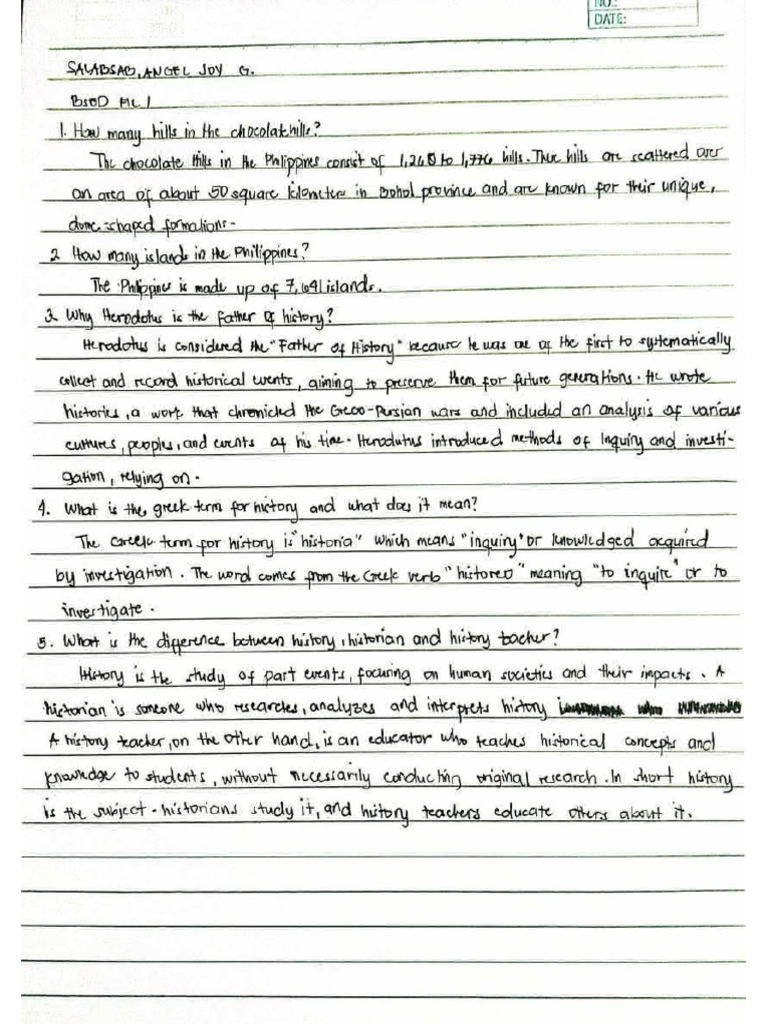 NO.:
DATE:
SALABSAB, ANGEL JOY G.
BSED ML 1
1. How many hills in the chocolate hills?
The chocolate Hills in the Philippines consist of 1,260 to 1,776 hills. These hills are scattered over
an area of about 50 square kilometers in Bohol province and are known for their unique,
dome-shaped formations.
2. How many islands in the Philippines?
The Philippines is made up of 7,641 islands.
3. Why Herodotus is the father of history?
Herodotus is considered the "Father of History" because he was one of the first to systematically
collect and record historical events, aiming to preserve them for future generations. He wrote
histories, a work that chronicled the Greco-Persian wars and included an analysis of various
cultures, peoples, and events of his time. Herodutus introduced methods of Inquiry and investi-
gation, relying on.
4. What is the greek term for history and what does it mean?
The Greek term for history is "historia" which means "inquiry" or knowledged acquired
by investigation. The word comes from the Greek verb "historeo" meaning "to inquire" or to
investigate.
5. What is the difference between history, historian and history teacher?
History is the study of past events, focusing on human societies and their impacts. A
historian is someone who researches, analyzes and interprets history
A history teacher, on the other hand, is an educator who teaches historical concepts and
knowledge to students, without necessarily conducting original research. In short history
is the subject - historians study it, and history teachers educate others about it.